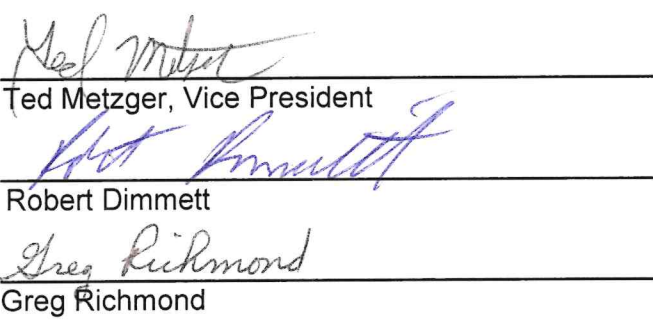 Ted Metzger
Ted Metzger, Vice President
Robert Dimmett
Robert Dimmett
Greg Richmond
Greg Richmond